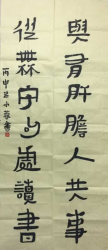 與有肝膽人共事
從無字句處讀書
丙申